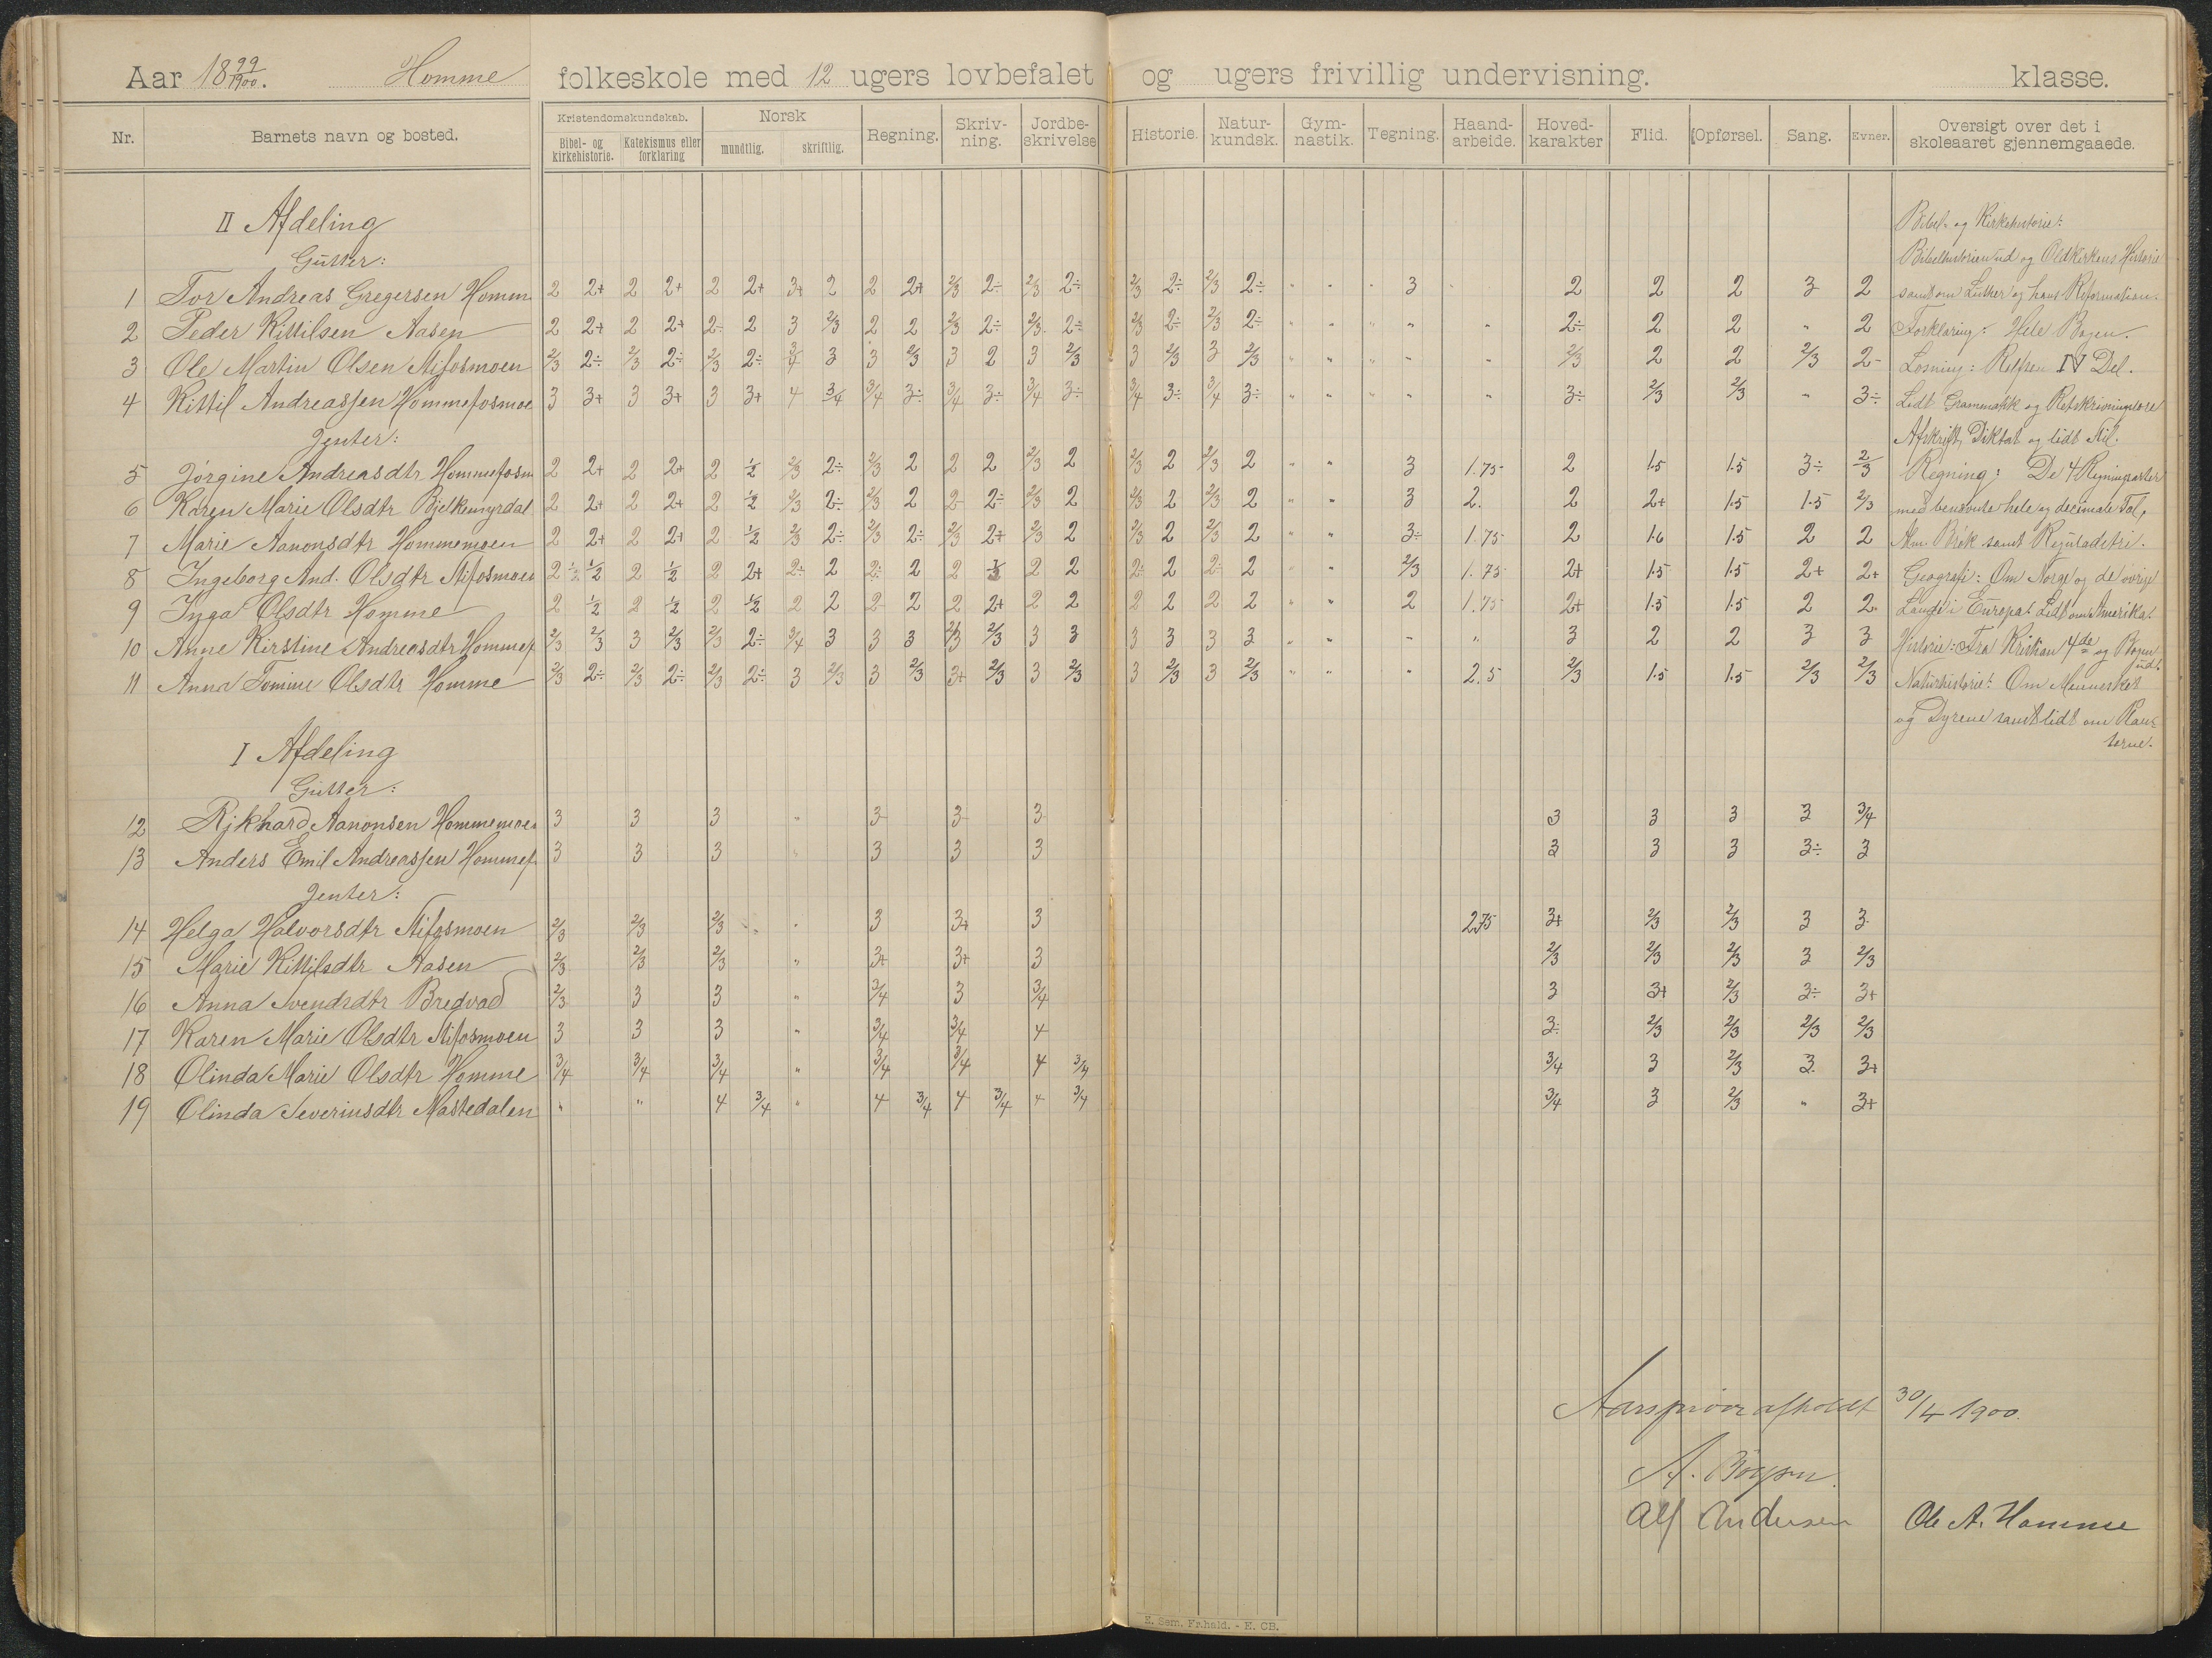 Aar 18 99/1900. Homme folkeskole med 12 ugers lovbefalet og ugers frivillig undervisning. klasse.
Nr. Barnets navn og bosted. Kristendomskundskab. Bibel- og kirkehistorie. Katekismus eller forklaring Norsk mundtlig. skriftlig. Regning. Skriv-ning. Jordbe-skrivelse Historie. Natur-kundsk. Gym-nastik. Tegning. Haand-arbeide. Hoved-karakter Flid. Opførsel. Sang. Evner. Oversigt over det i skoleaaret gjennemgaaede.
II Afdeling
Gutter:
1 Tor Andreas Gregersen Homm 2 2+ 2 2+ 2 2+ 3+ 2 2 2+ 2/3 2÷ 2/3 2÷ 2/3 2÷ 2/3 2÷ " " " 3 2 2 2 3 2
2 Peder Kittilsen Aasen 2 2+ 2 2+ 2÷ 2 3 2/3 2 2 2/3 2÷ 2/3 2÷ 2/3 2÷ 2/3 2÷ " " " " " 2÷ 2 2 " 2
3 Ole Martin Olsen Stifosmoen 2/3 2÷ 2/3 2÷ 2/3 2÷ 3/4 3 3 2/3 3 2 3 2/3 3 2/3 3 2/3 " " " " " 2/3 2 2 2/3 2-
4 Kittil Andreassen Hommefosmoe 3 3+ 3 3+ 3 3+ 4 3/4 3/4 3÷ 3/4 3÷ 3/4 3÷ 3/4 3÷ 3/4 3÷ " " " " " 3÷ 2/3 2/3 " 3÷
Jenter:
5 Jørgine Andreasdtr Hommefosm 2 2+ 2 2+ 2 1/2 2/3 2÷ 2/3 2 2 2 2/3 2 2/3 2 2/3 2 " " 3 1.75 2 1.5 1.5 3÷ 2/3
6 Karen Marie Olsdtr Bjelkemyrdal 2 2+ 2 2+ 2 1/2 2/3 2÷ 2/3 2 2 2÷ 2/3 2 2/3 2 2/3 2 " " 3 2. 2 2+ 1.5 1.5 2/3
7 Marie Aanonsdtr Hommemoen 2 2+ 2 2+ 2 1/2 2/3 2÷ 2/3 2÷ 2/3 2+ 2/3 2 2/3 2 2/3 2 " " 3÷ 1.75 2 1.6 1.5 2 2
8 Ingeborg And. Olsdtr Stifosmoen 2 1/2 1/2 2 1/2 2 2+ 2÷ 2 2÷ 2 2 1/2 2 2 2÷ 2 2÷ 2 " " 2/3 1.75 2+ 1.5 1.5 2+ 2+
9 Inga Olsdtr Homme 2 1/2 2 1/2 2 1/2 2 2 2 2 2 2+ 2 2 2 2 2 2 " " 2 1.75 2+ 1.5 1.5 2 2
10 Anne Kirstine Andreasdtr Hommef 2/3 2/3 3 2/3 2/3 2÷ 3/4 3 3 3 2/3 2/3 3 3 3 3 3 3 " " " " 3 2 2 3 3
11 Anna Tomine Olsdtr Homme 2/3 2÷ 2/3 2÷ 2/3 2÷ 3 2/3 3 2/3 3+ 2/3 3 2/3 3 2/3 3 2/3 " " " 2.5 2/3 1.5 1.5 2/3 2/3
I Afdeling
Gutter:
12 Rikhard Aanonsen Hommemoen 3 3 3 " 3 3 3 3 3 3 3 3/4
13 Anders Emil Andreassen Hommef. 3 3 3 " 3 3 3 3 3 3 3÷ 3
Jenter:
14 Helga Halvorsdtr Stifosmoen 2/3 2/3 2/3 " 3 3+ 3 2.75 3+ 2/3 2/3 3 3
15 Marie Kittilsdtr Aasen 2/3 2/3 2/3 " 3+ 3+ 3 2/3 2/3 2/3 3 2/3
16 Anna Svendsdtr Bredvad 2/3 3 3 " 3/4 3 3/4 3 3+ 2/3 3÷ 3+
17 Karen Marie Olsdtr Stifosmoen 3 3 3 " 3/4 3/4 4 3÷ 2/3 2/3 2/3 2/3
18 Olinda Marie Olsdtr Homme 3/4 3/4 3/4 " 3/4 3/4 4 3/4 3/4 3 2/3 3. 3+
19 Olinda Severinsdtr Nastedalen " " 4 3/4 " 4 3/4 4 3/4 4 3/4 3/4 3 2/3 " 3+
Bibel- og Kirkehistorie:
Bibelhistorien ud og Oldkirkens Historie
samt om Luther og hans Reformation.
Forklaring: Hele Bogen.
Læsning: Rolfsen IV Del.
Lidt Grammatikk og Retskrivningslære
Afskrift, Diktat og lidt Stil.
Regning: De 4 Regningsarter
med benævnte hele og decimale Tal,
Alm. Brøk samt Reguladetri.
Geografi: Om Norge og de øvrige
Lande i Europa. Lidt om Amerika.
Historie: Fra Kristian 4de og Bogen
ud.
Naturhistorie: Om Mennesket
og Dyrene samt lidt om Plan-
terne.
Aarsprøve afholdt 30/4 1900.
A.
Alf Andersen Ole A. Homme
E. Sem, Fr.hald. - E. CB.